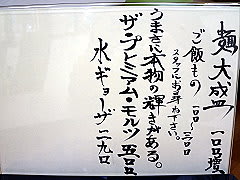 麺大盛 一〇〇増
ご飯もの 一〇〇〜三〇〇
スタッフにお尋ね下さい。
うまさに本物の輝きがある。
ザ・プレミアム・モルツ 五〇〇
水ギョーザ 二九〇